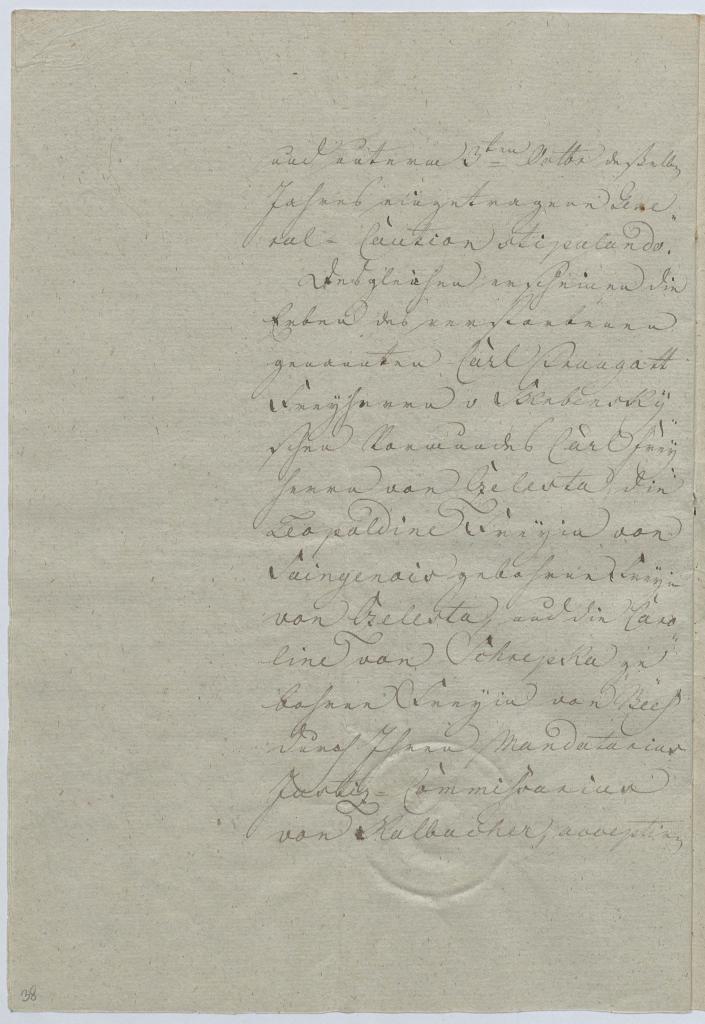 und unterm 3ten Octbr desselben
Jahres eingetragene Gene
ral-Caution stipulando.
Desgleichen erscheinen die
Erben des verstorbenen
genannten Carl Traugott
Freyherrn v Skrbensky
schen Vormundes Carl Frey
herrn von Czelesta, die
Leopoldine Freyin von
Saingenois gebohrne Freyin
von Czelesta, und die Caro
line von Schrepka ge
bohrne Freyin von Bees
durch Ihren Mandatarius
Justiz-Commissarius
von Kalbacher, acceptiren
38